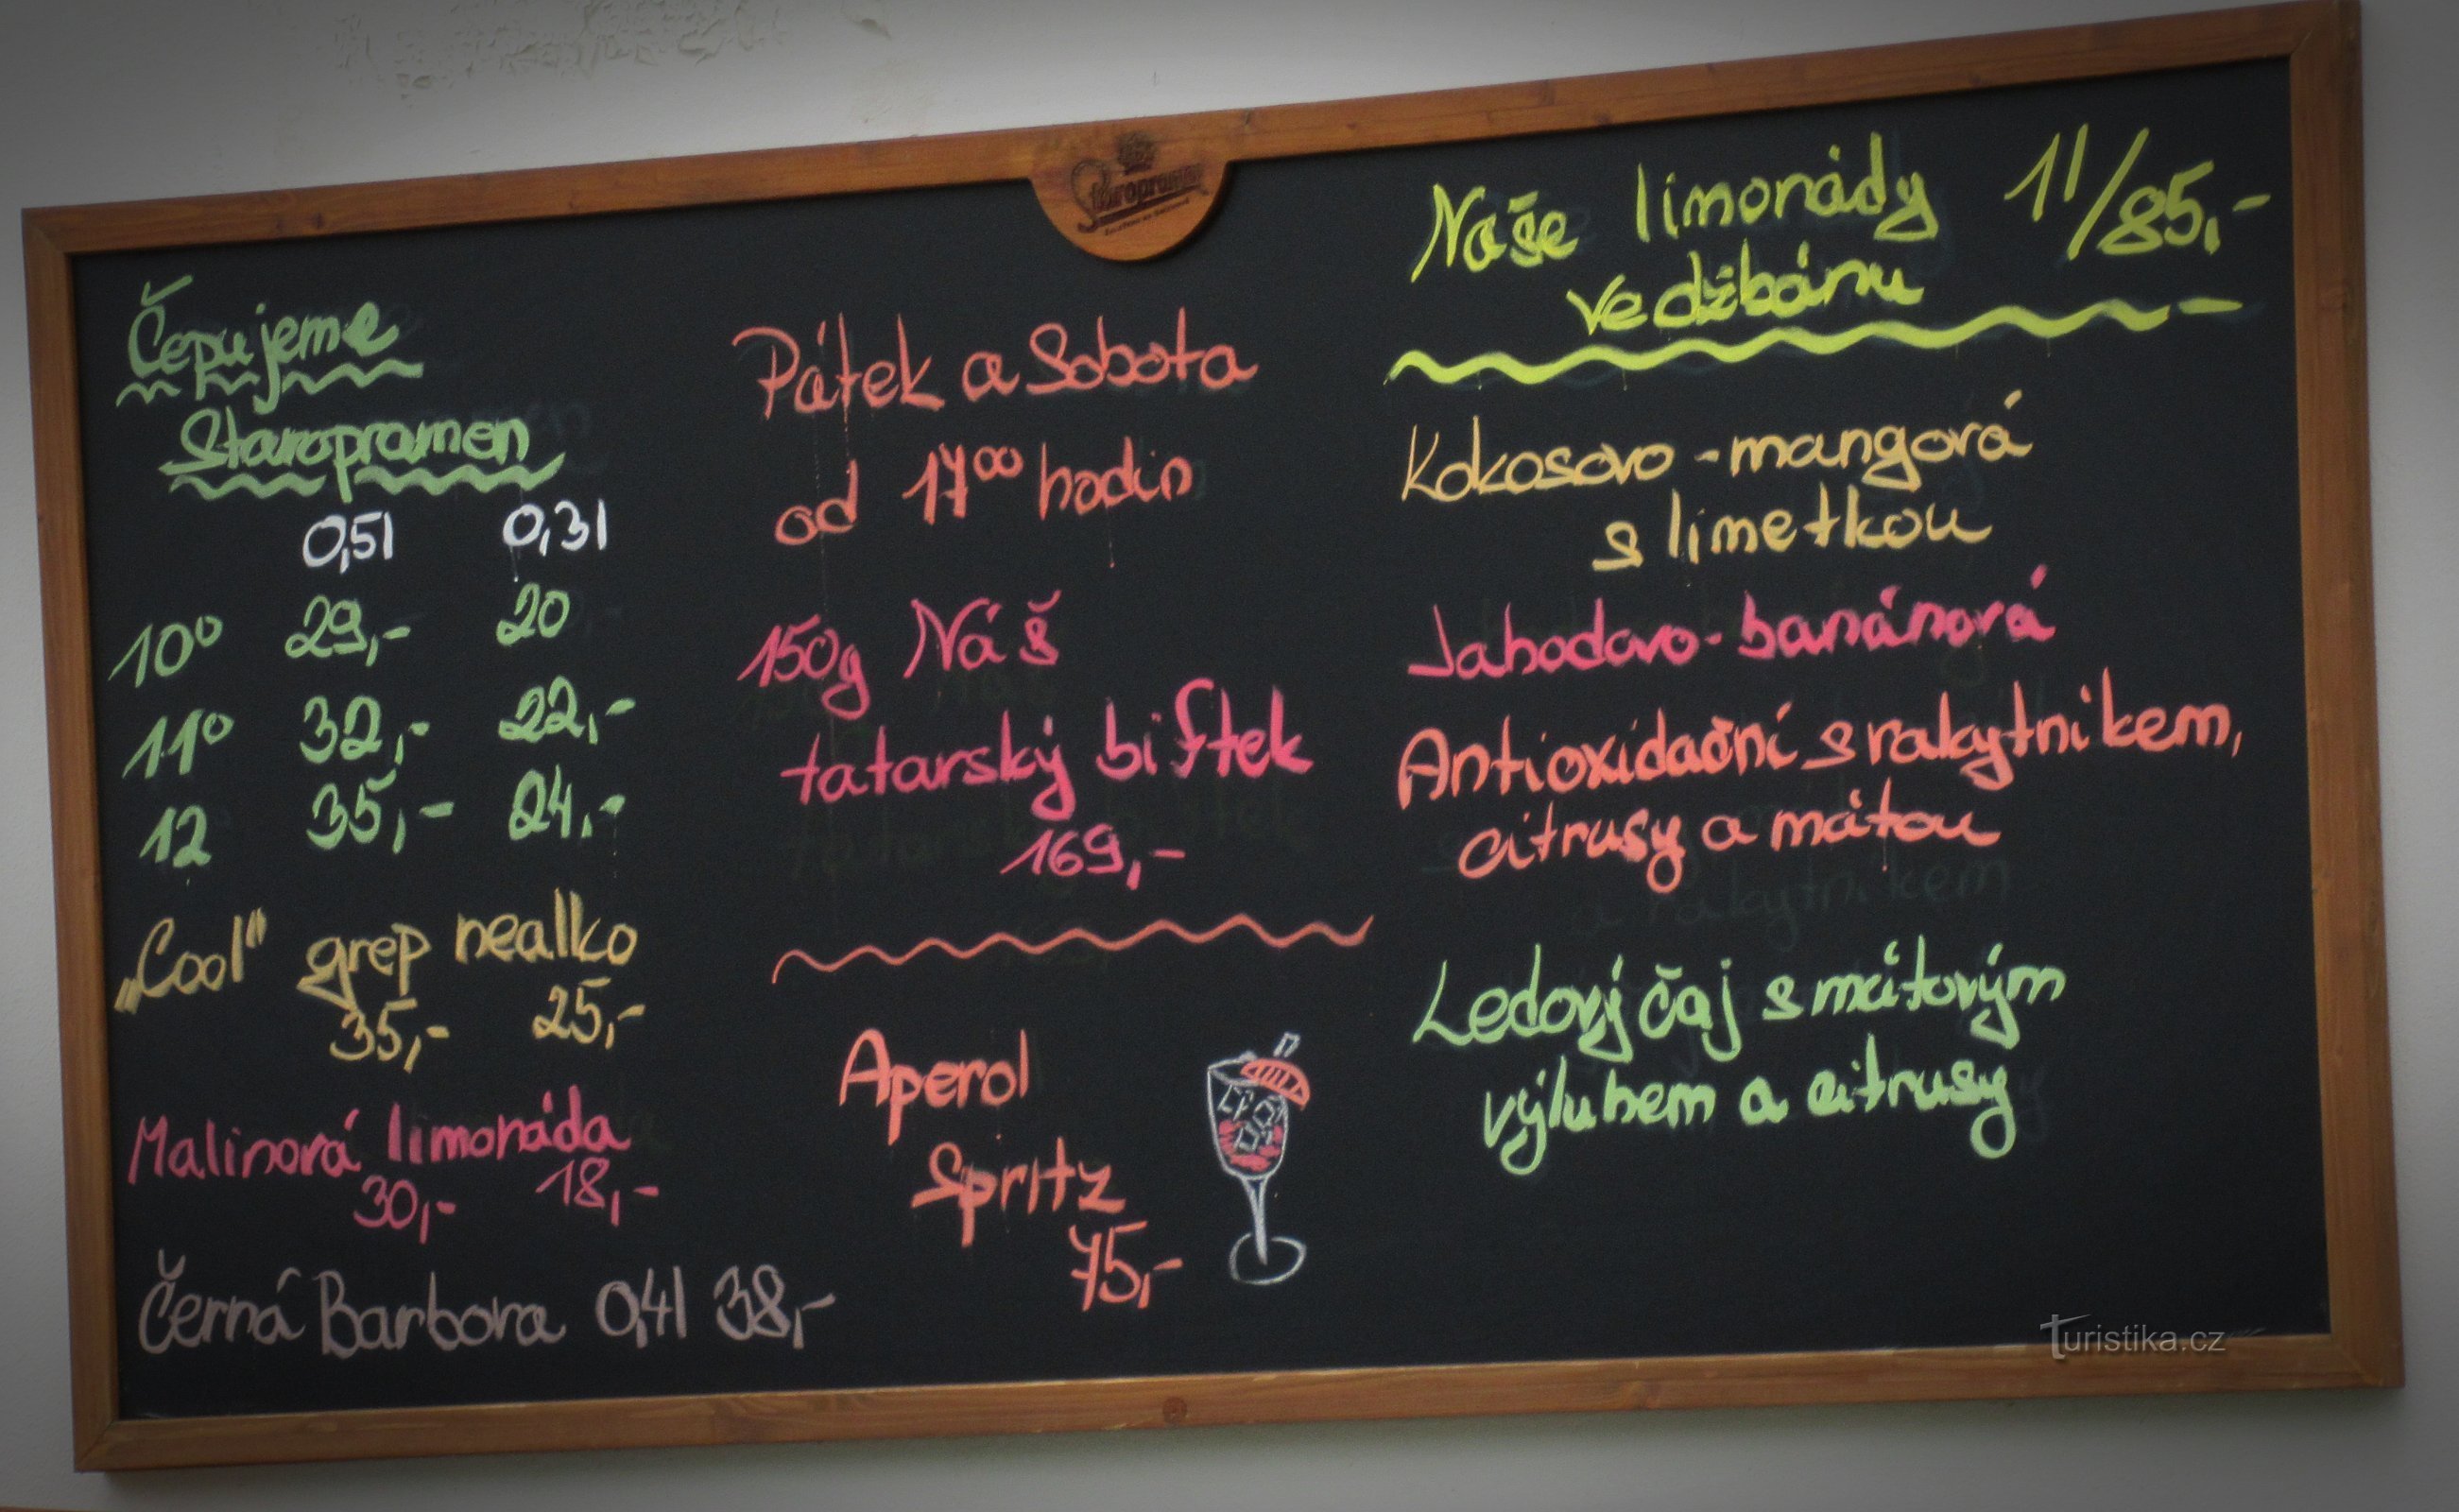 Staropramen
Čepujeme
Staropramen
0,5l 0,3l
10° 29,- 20
11° 32,- 22,-
12 35,- 24,-
„Cool" grep nealko
35,- 25,-
Malinová limonáda
30,- 18,-
Černá Barbora 0,4l 38,-
Pátek a Sobota
od 17⁰⁰ hodin
150g Náš
tatarský biftek
169,-
Aperol
Spritz
75,-
Naše limonády 1l/85,-
ve džbánu
Kokosovo-mangová
s limetkou
Jahodovo-banánová
Antioxidační s rakytníkem,
citrusy a mátou
Ledový čaj s mátovým
výluhem a citrusy
Turistika.cz